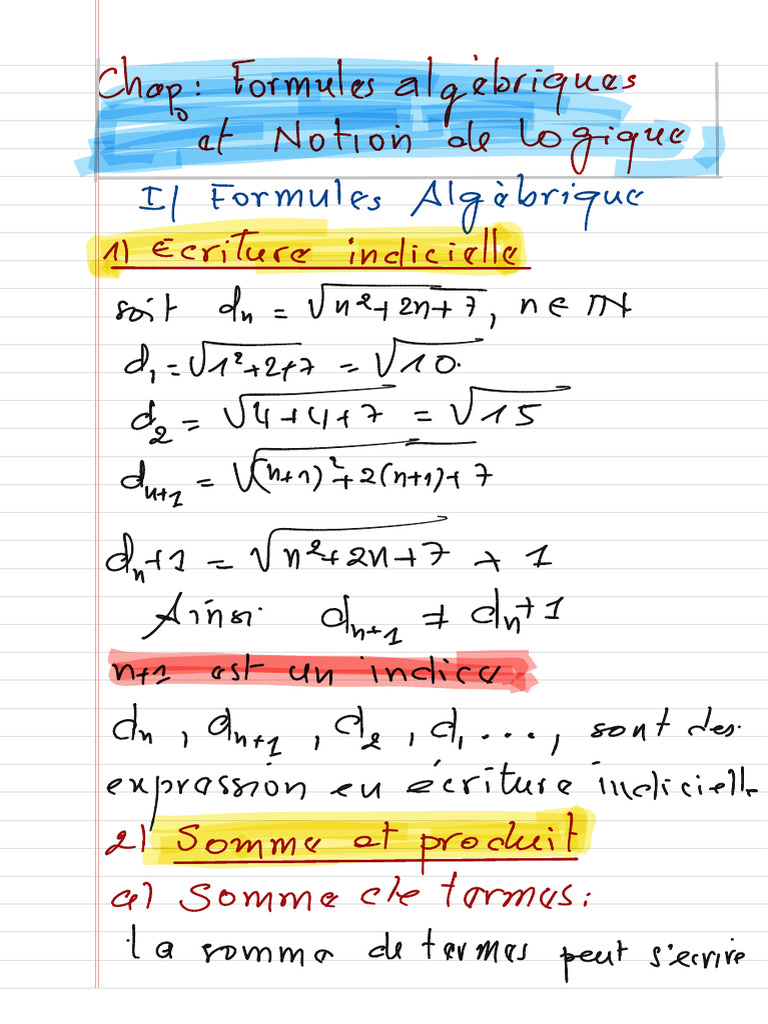 Chap: Formules algèbriques
et Notion de Logique
I/ Formules Algèbrique
1) Ecriture indicielle
soit dₙ = √(n²+2n+7), n ∈ ℕ
d₁ = √(1²+2+7) = √10.
d₂ = √(4+4+7) = √15
dₙ₊₁ = √((n+1)²+2(n+1)+7)
dₙ+1 = √(n²+2n+7) + 1
Ainsi dₙ₊₁ ≠ dₙ+1
n+1 est un indice
dₙ, dₙ₊₁, d₂, d₁ ..., sont des
expression en écriture indicielle
2) Somme et produit
a) Somme de termes:
La somme de termes peut s'ecrire